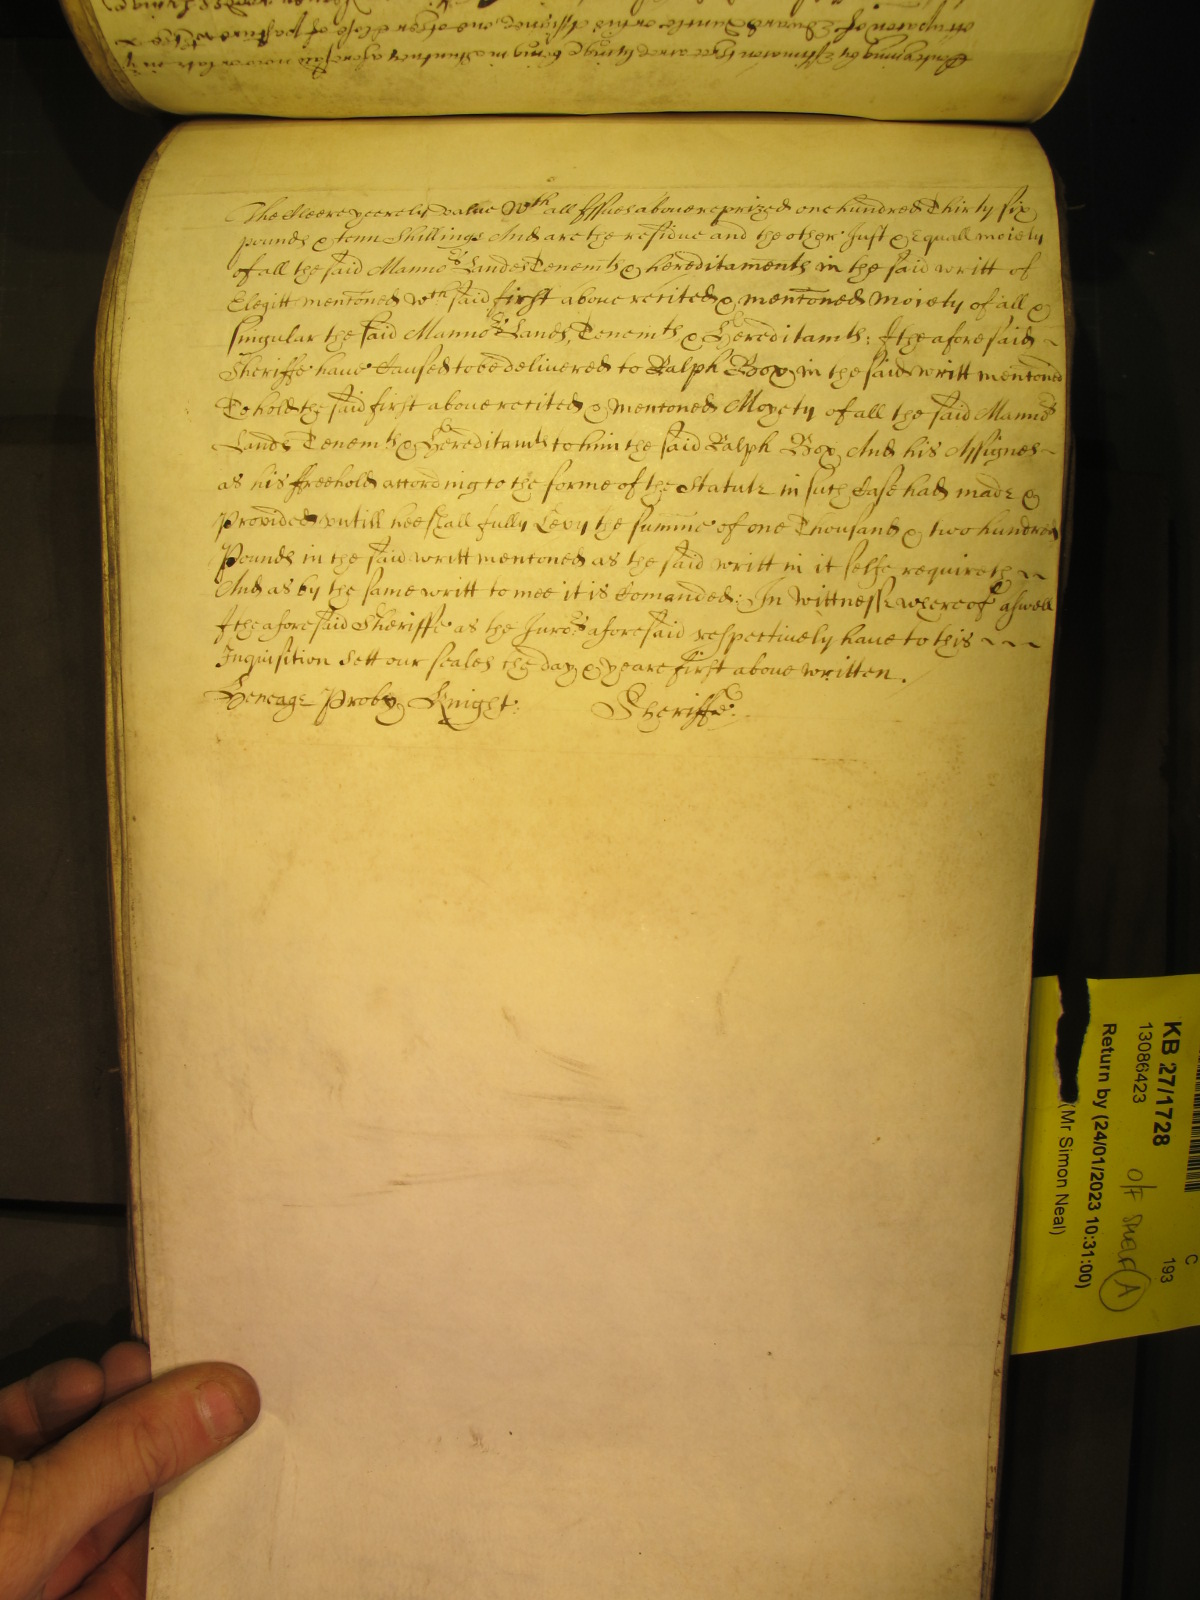 The cleere yeerely value wth all Issues above reprized one hundred Thirty six
pounds & tenn Shillings And are the residue and the other Just & Equall moiety
of all the said Manno:rs Landes Tenemts & hereditaments in the said writt of
Elegitt mentoned wth said first above recited & mentoned Moiety of all &
singular the said Manno:rs Lands, Tenemts & Hereditamts: I the aforesaid ~
Sheriffe have Caused to be delivered to Ralph Box in the said writt mentoned
To hold the said first above recited & mentoned Moyety of all the said Manno:rs
Lands Tenemts & Hereditamts to him the said Ralph Box And his Assignes ~
as his ffreehold according to the forme of the Statute in such Case had made &
Provided untill hee shall fully Levy the summe of one Thousand & two hundred
Pounds in the said writt mentoned as the said writt in it selfe requireth ~ ~
And as by the same writt to mee it is Comanded: In Wittnesse whereof aswell
I the aforesaid Sheriffe as the Juro:rs aforesaid respectively have to this ~ ~ ~
Inquisition Sett our seales the day & yeare first above written.
Heneage Proby Knight: Sheriffe:
KB 27/1728
13086423
Return by (24/01/2023 10:31:00)
(Mr Simon Neal)
C
193
O/F
A